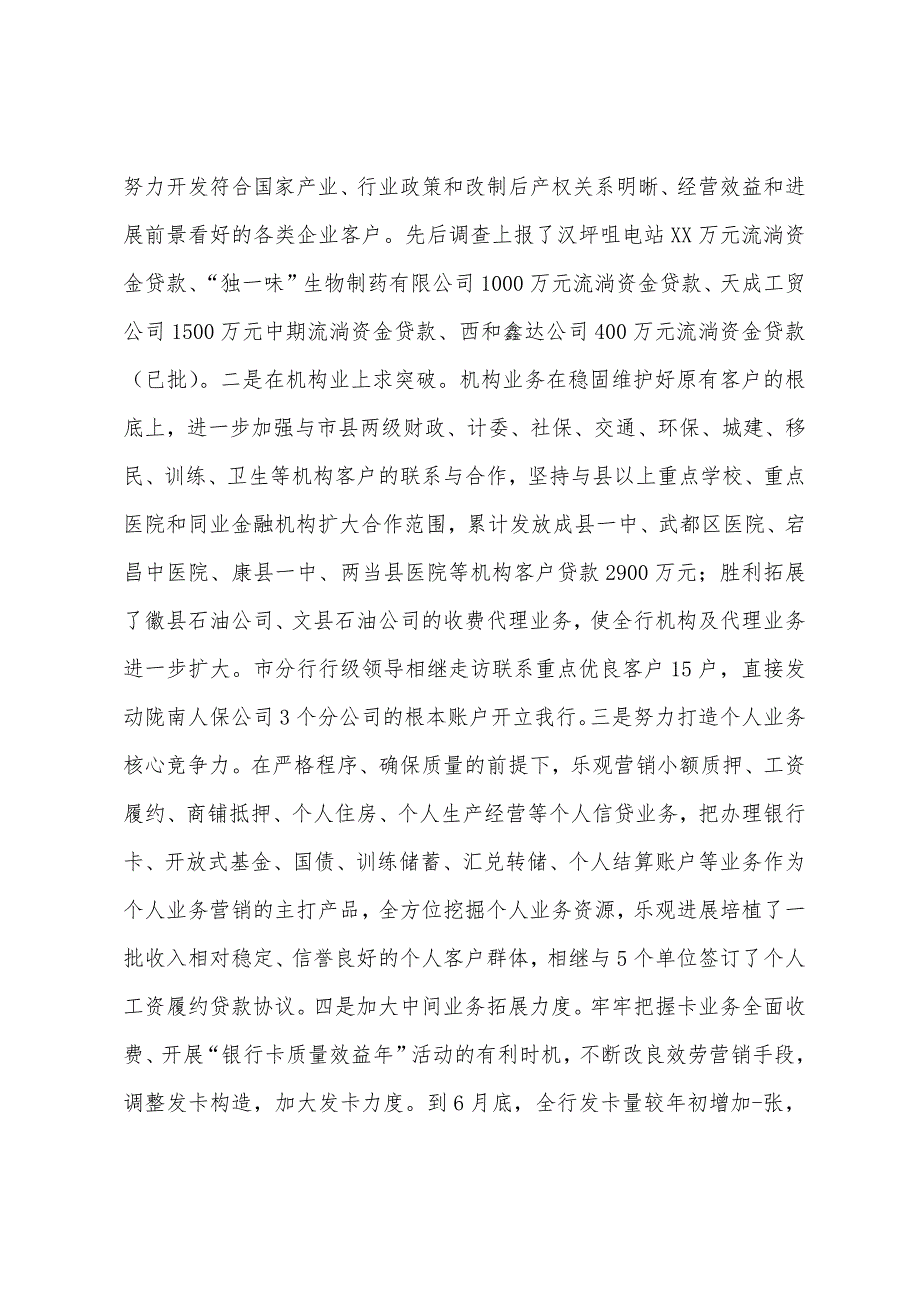 努力开发符合国家产业、行业政策和改制后产权关系明晰、经营效益和进
展前景看好的各类企业客户。先后调查上报了汉坪咀电站XX万元流淌资
金贷款、“独一味”生物制药有限公司1000万元流淌资金贷款、天成工贸
公司1500万元中期流淌资金贷款、西和鑫达公司400万元流淌资金贷款
（已批）。二是在机构业上求突破。机构业务在稳固维护好原有客户的根
底上，进一步加强与市县两级财政、计委、社保、交通、环保、城建、移
民、训练、卫生等机构客户的联系与合作，坚持与县以上重点学校、重点
医院和同业金融机构扩大合作范围，累计发放成县一中、武都区医院、宕
昌中医院、康县一中、两当县医院等机构客户贷款2900万元；胜利拓展
了徽县石油公司、文县石油公司的收费代理业务，使全行机构及代理业务
进一步扩大。市分行行级领导相继走访联系重点优良客户15户，直接发
动陇南人保公司3个分公司的根本账户开立我行。三是努力打造个人业务
核心竞争力。在严格程序、确保质量的前提下，乐观营销小额质押、工资
履约、商铺抵押、个人住房、个人生产经营等个人信贷业务，把办理银行
卡、开放式基金、国债、训练储蓄、汇兑转储、个人结算账户等业务作为
个人业务营销的主打产品，全方位挖掘个人业务资源，乐观进展培植了一
批收入相对稳定、信誉良好的个人客户群体，相继与5个单位签订了个人
工资履约贷款协议。四是加大中间业务拓展力度。牢牢把握卡业务全面收
费、开展“银行卡质量效益年”活动的有利时机，不断改良效劳营销手段，
调整发卡构造，加大发卡力度。到6月底，全行发卡量较年初增加-张，